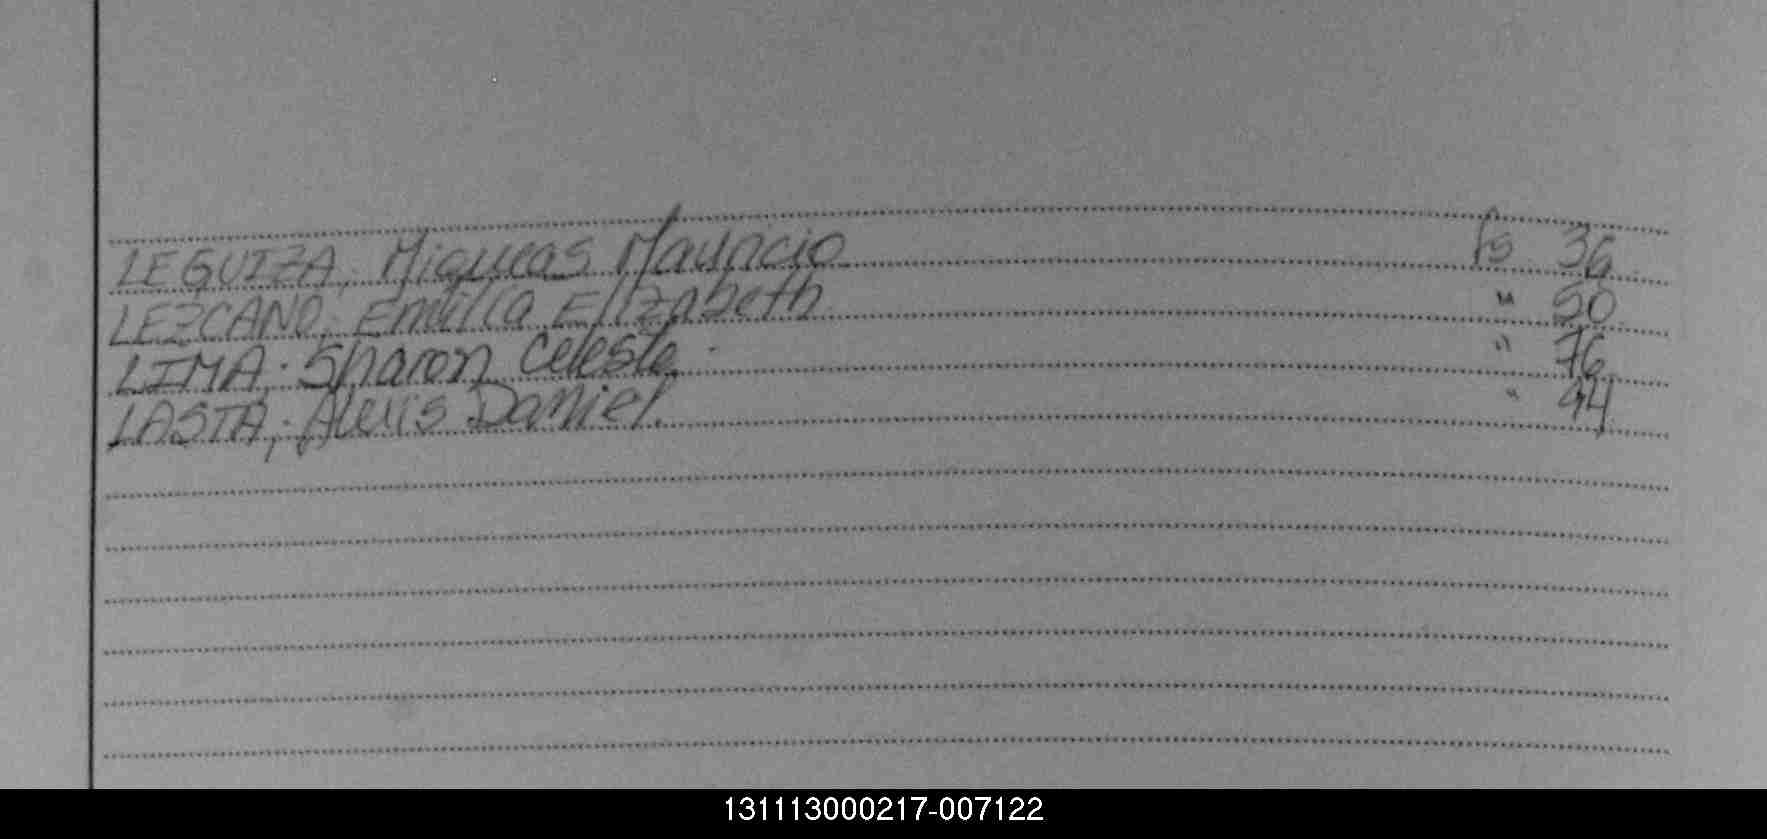 LEGUIZA, Miqueas Mauricio fs 36
LEZCANO, Emilia Elizabeth " 50
LIMA, Sharon Celeste. " 76
LASTA, Alexis Daniel. " 94
131113000217-007122